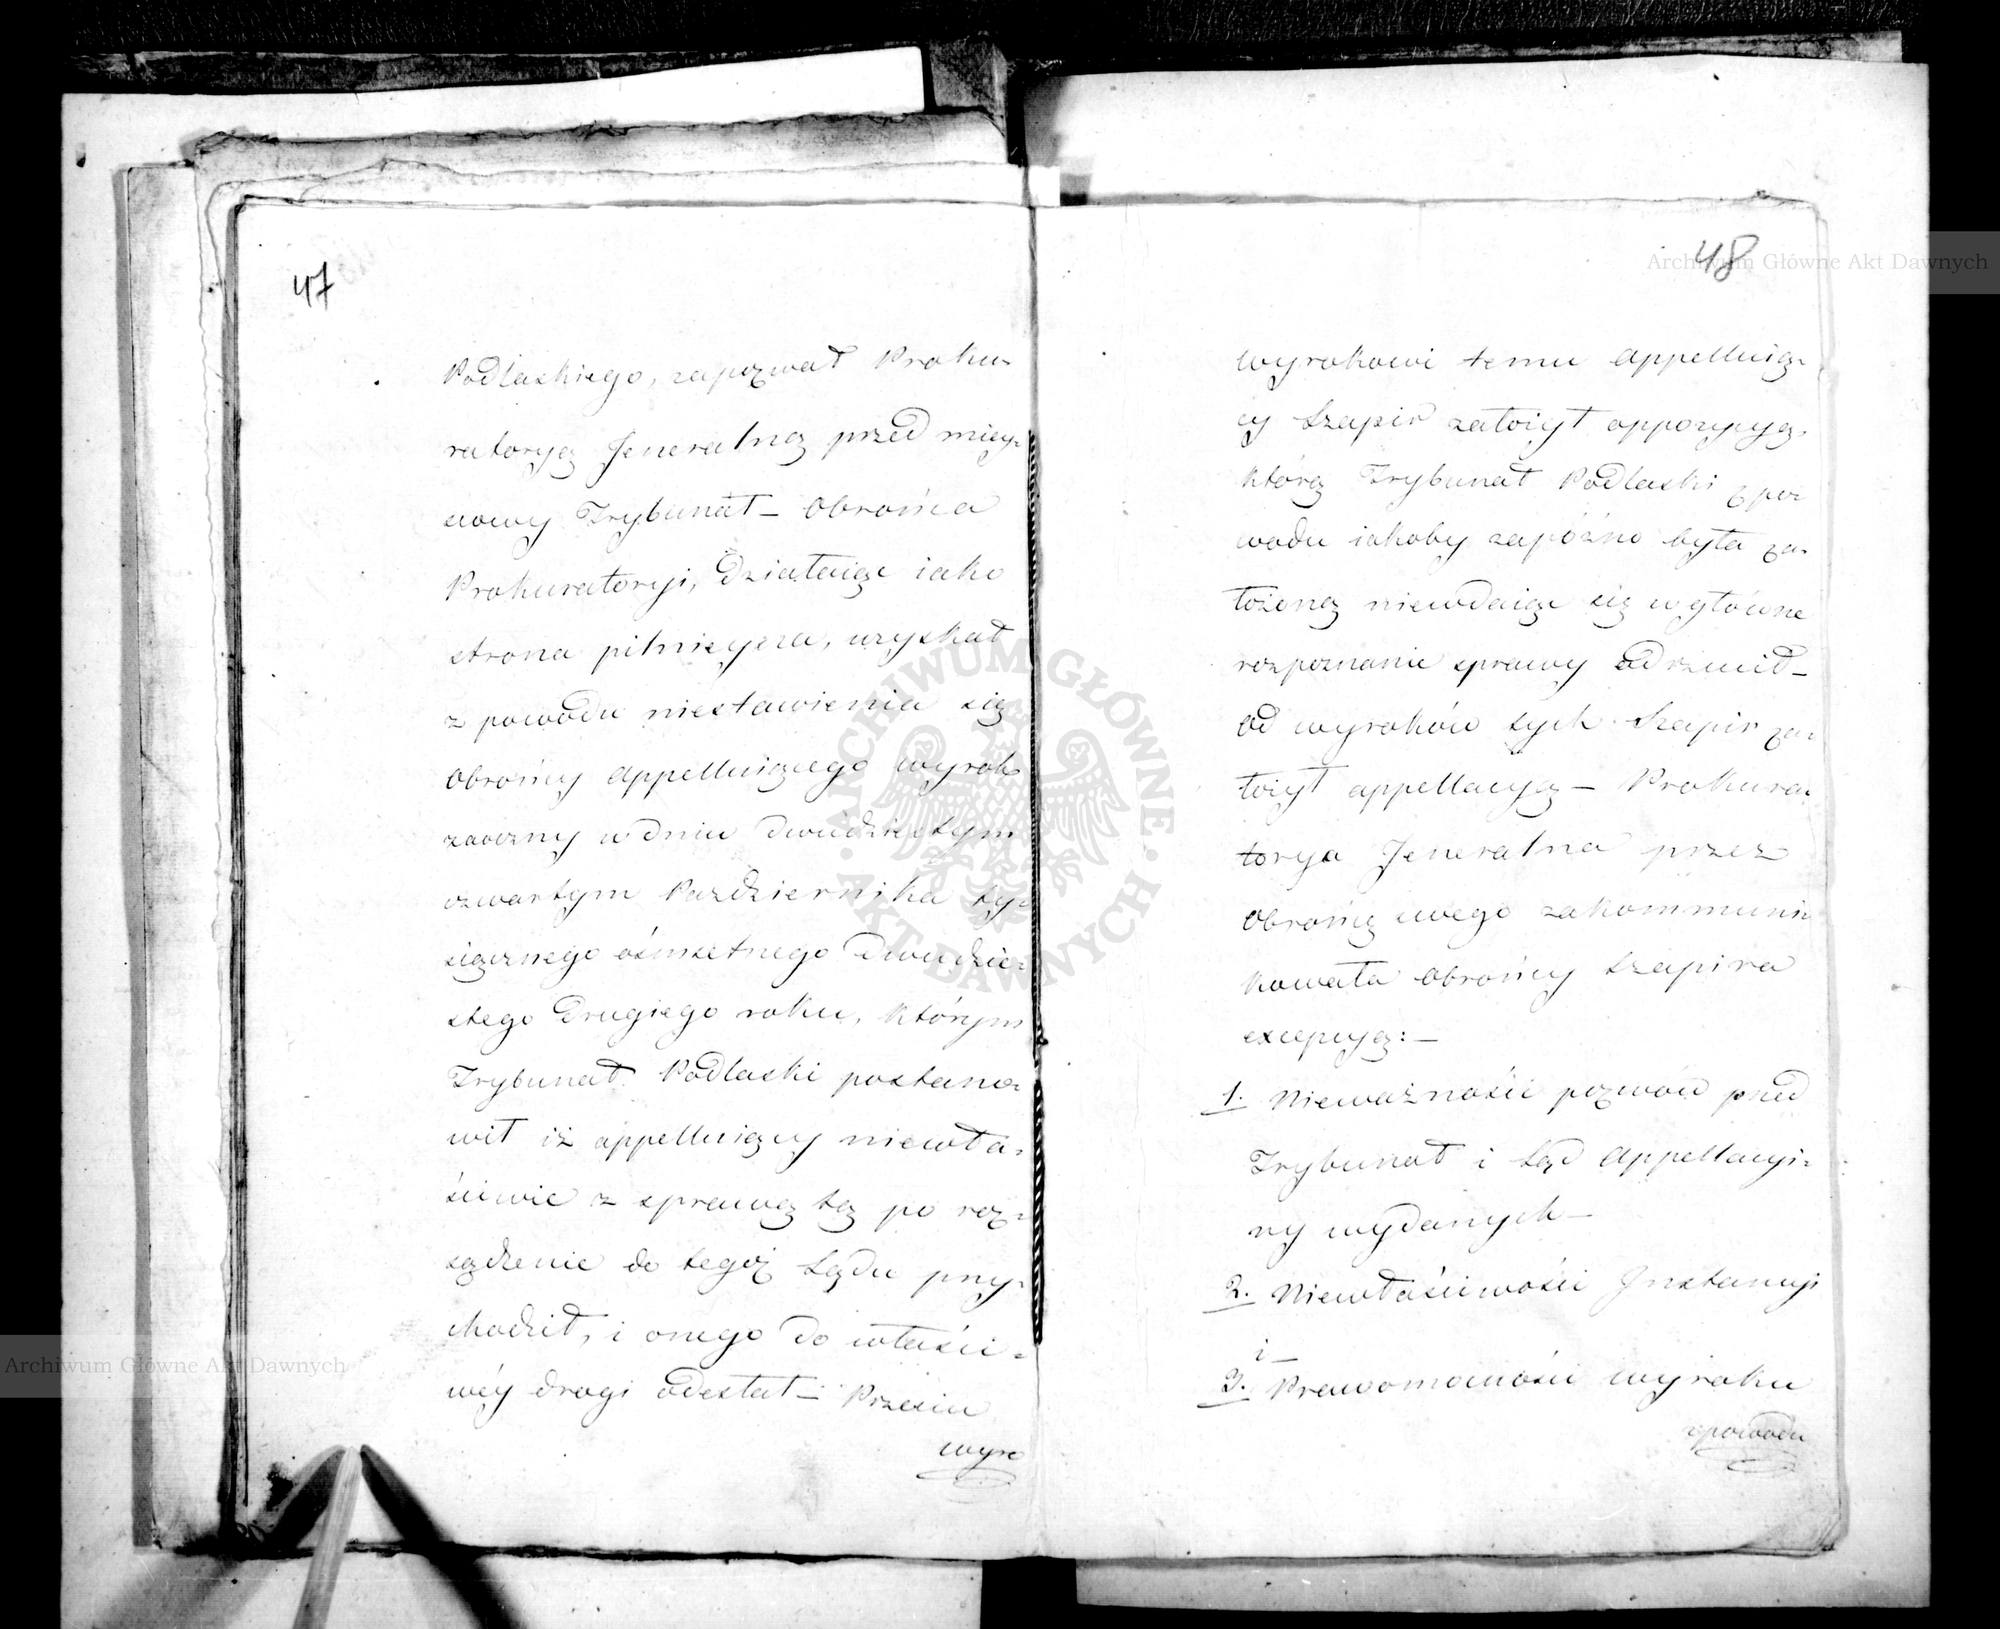 47
Podlaskiego, zapozwał Proku-
ratoryą Jeneralną przed miey-
scowy Trybunał – Obrońca
Prokuratoryi, działaiąc iako
strona pilnieysza, uzyskał
z powodu niestawienia się
Obrońcy appelluiącego wyrok
zaoczny w dniu dwudziestym
czwartym Października ty-
siącznego ośmsetnego dwudzie-
stego drugiego roku, którym
Trybunał Podlaski postano-
wił iż appelluiący niewła-
ściwie z sprawą tą po roz-
sądzenie do tegoż Sądu przy-
chodził, i onego do właści-
wéy drogi odesłał – Przeciw
wyro
48
wyrokowi temu appelluią-
cy Szapir założył oppozycyą,
którą Trybunał Podlaski z po-
wodu iakoby zapóźno była za-
łożoną niewdaiąc się w główne
rozpoznanie sprawy odrzucił –
Od wyroków tych Szapir za-
łożył appellacyą – Prokura-
torya Jeneralna przez
Obrońcę swego zakommuni-
kowała Obrońcy Szapira
excepcyą: –
1. Nieważności pozwów przed
Trybunał i Sąd Appellacyi-
ny wydanych –
2. Niewłaściwości Instancyi
i –
3. Prawomocności wyroku
z powodu
Archiwum Główne Akt Dawnych
Archiwum Główne Akt Dawnych
ARCHIWUM GŁÓWNE · AKT DAWNYCH ·